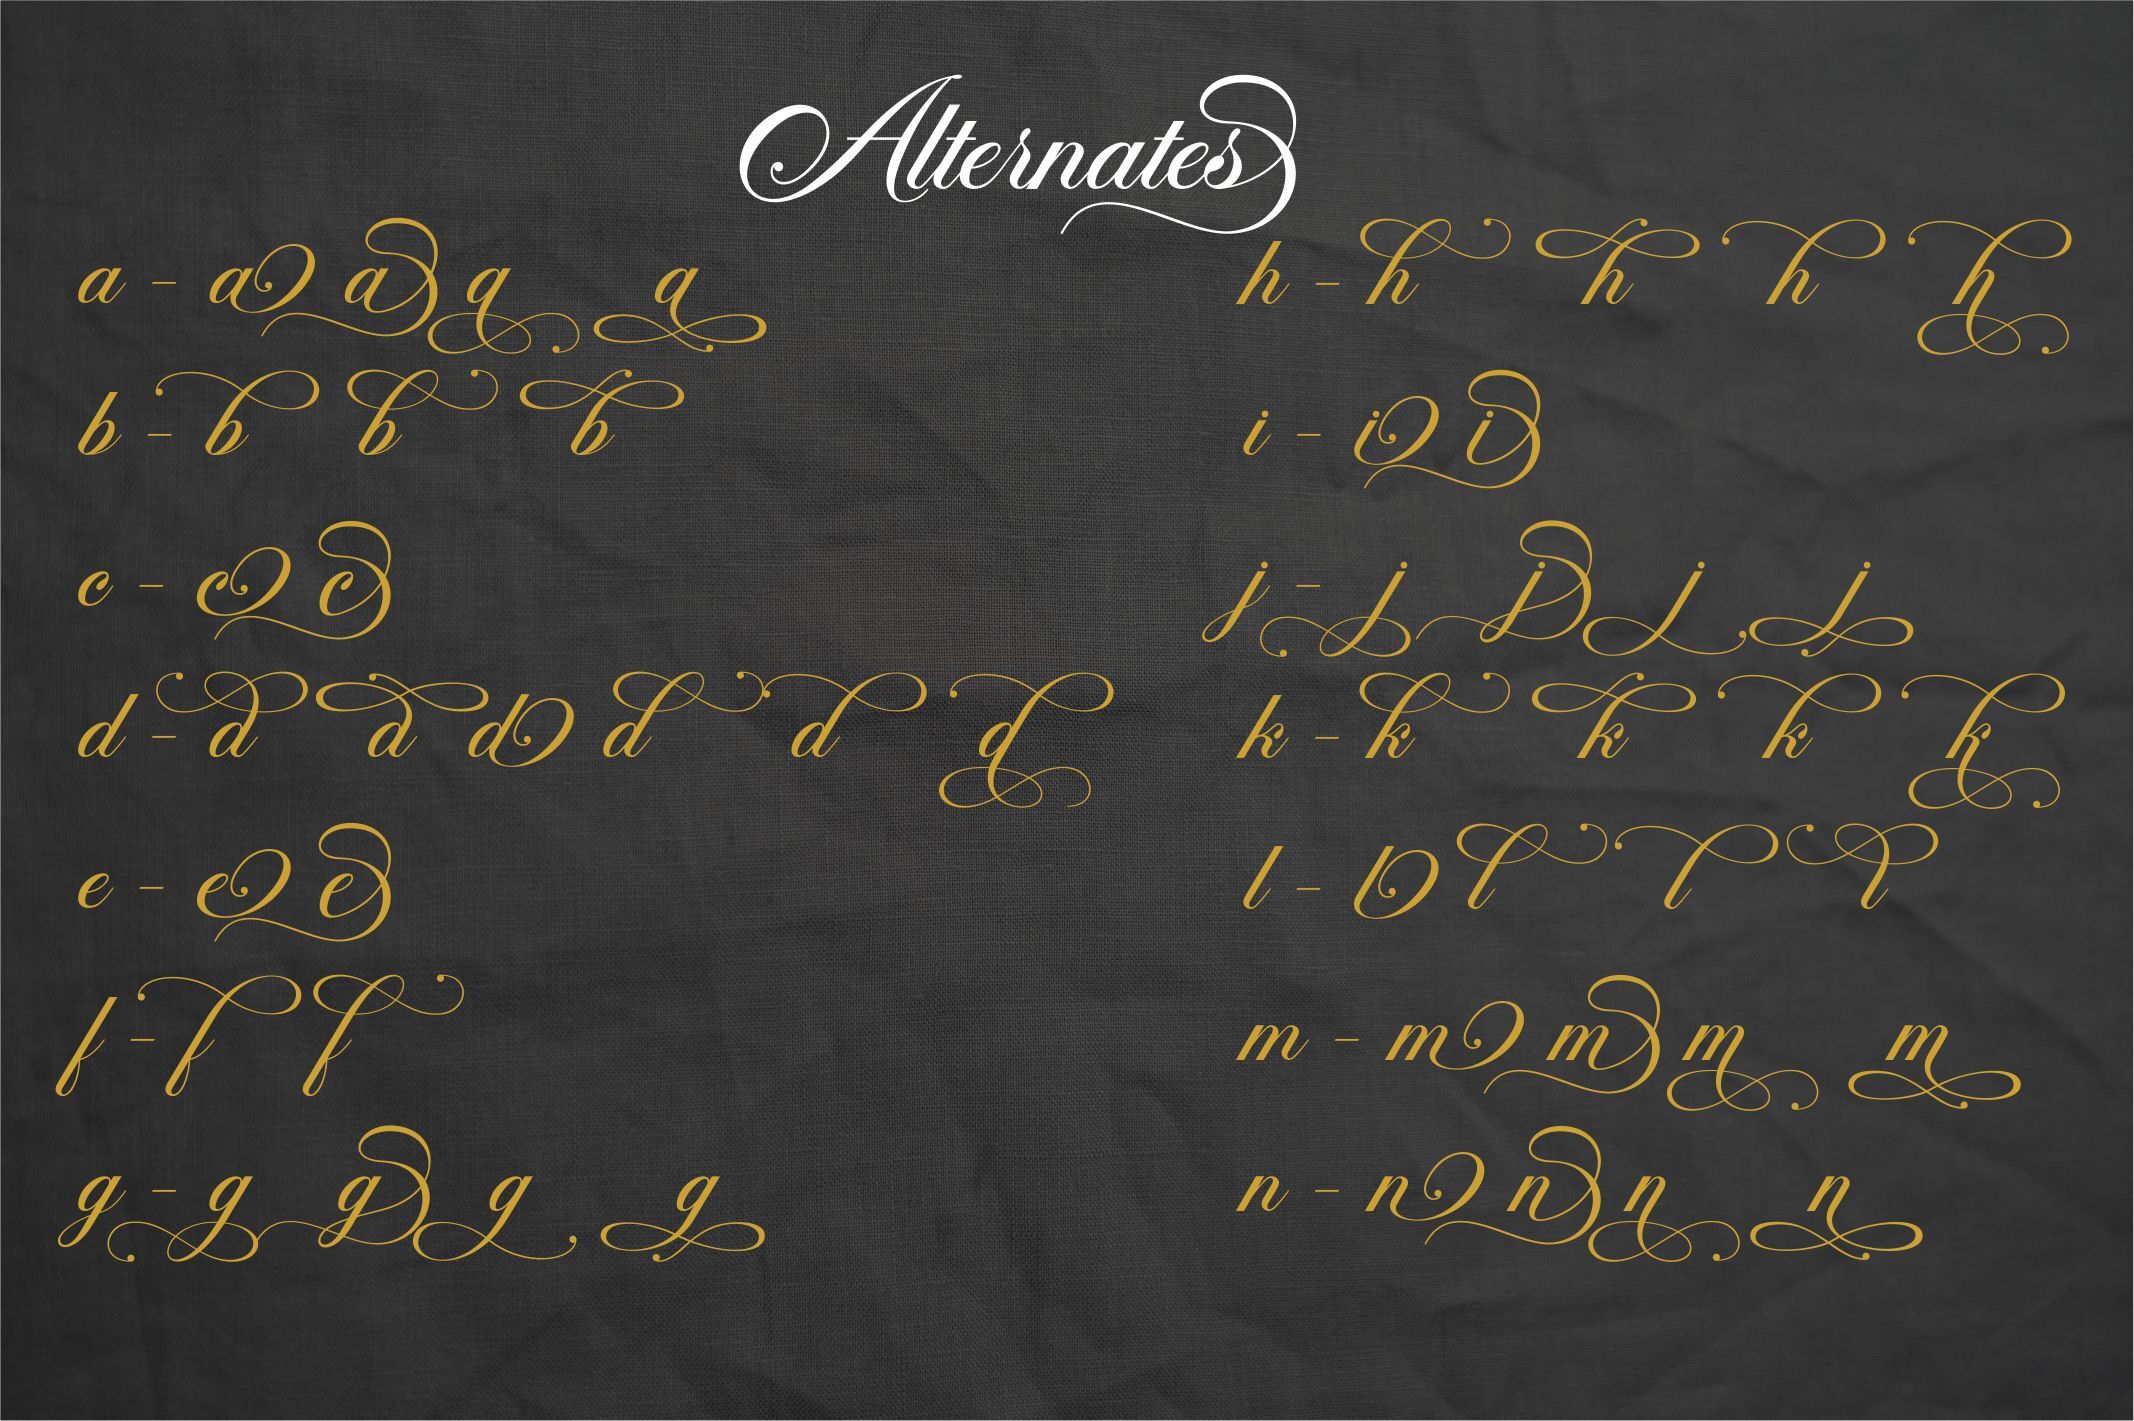 Alternates
a - a a a a
b - b b b
c - c c
d - d d d d d d
e - e e
f - f f
g - g g g g
h - h h h h
i - i i
j - j j j j
k - k k k k
l - l l l l
m - m m m m
n - n n n n